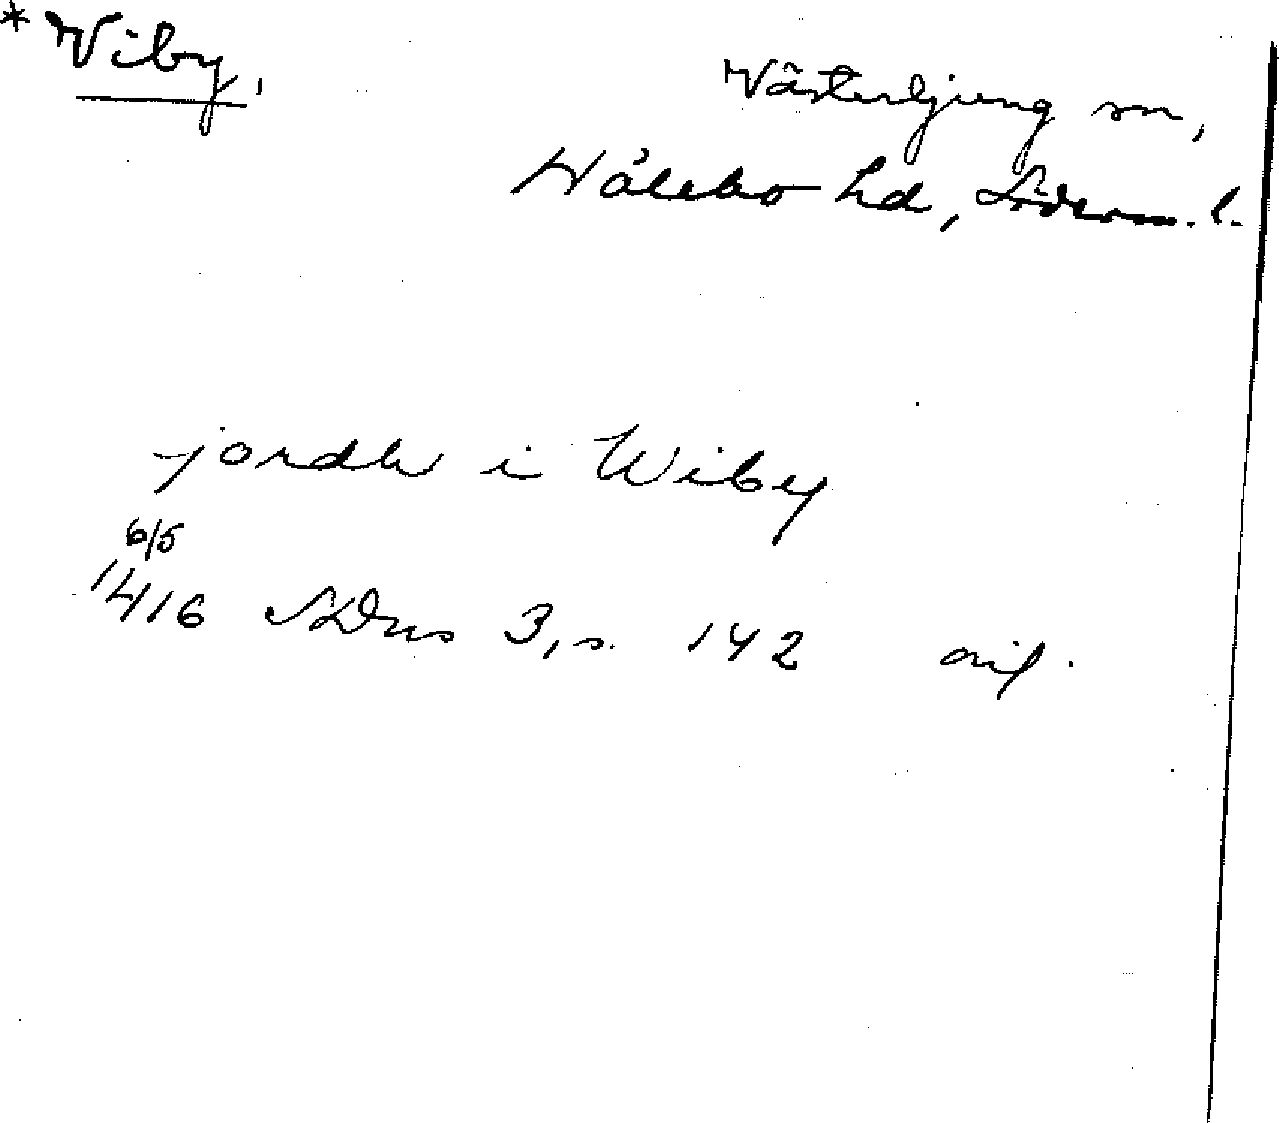 * Viby,
Västerljung sn,
Hålebo hd, Söderm. l.
jordh i Wiby
6/5
1416 SDns 3, s. 142 avf.